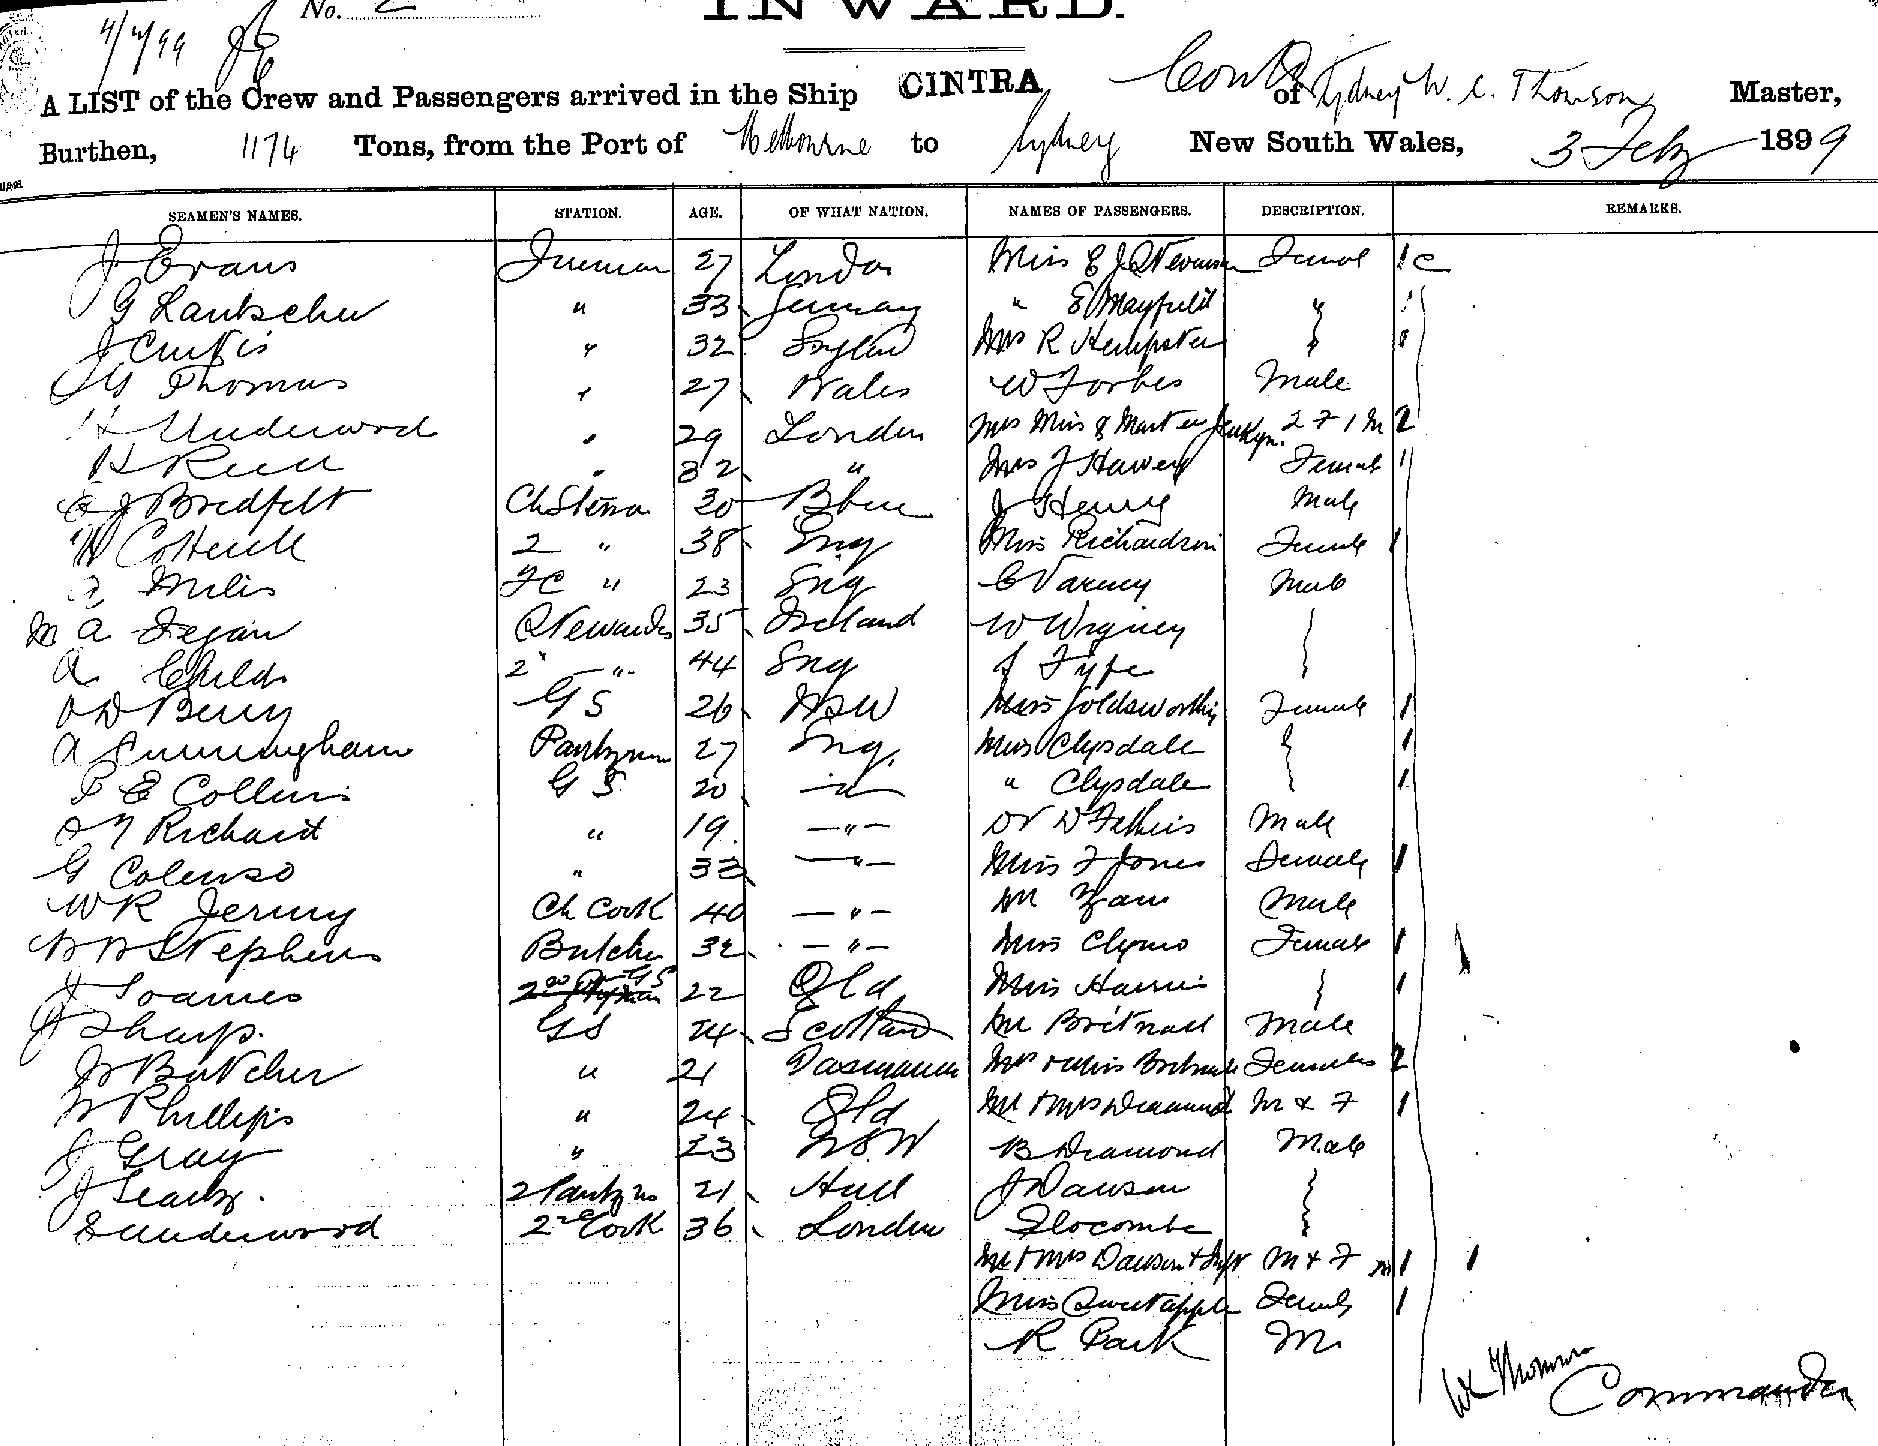 No. 2
INWARD.
4/4/99
A LIST of the Crew and Passengers arrived in the Ship CINTRA of Sydney W. C. Thomson Master,
Burthen, 1174 Tons, from the Port of Melbourne to Sydney New South Wales, 3 Feby 1899
SEAMEN'S NAMES. STATION. AGE. OF WHAT NATION. NAMES OF PASSENGERS. DESCRIPTION. REMARKS.
J Evans Fireman 27 London Miss E J Stevenson Femal 1 c
G " 33 Germany " E Mayfield " 1
J Curtis " 32 England Mrs R Hempster "
Thomas " 27 Wales W Forbes Male
H Underwood " 29 London Mrs Miss & Master Jenkyn. 2 F 1 M 2
H " 32 " Mrs J Female 1
J Bredfelt Ch Stewa 30 J Henry Male
W 2 " 38 Eng Miss Richardson Female 1
a Milis FC " 23 Eng C Varney Male
M a Fegan Stewardes 35 Ireland W Wrigney
a Childs 2 " 44 Eng J Fype
O D Berry G S 26 NSW Miss Goldsworthy Female 1
A Cunningham Pantrymn 27 Eng. Mrs Clysdale 1
E Collins G S 20 " " Clysdale 1
Richard " 19 " Dr D Male
G Colenso " 33 " Miss F Jones Female 1
W R Jermy Ch Cook 40 " Mr Male
Stephens Butcher 32 " Miss Clymo Female 1
J Soames G S 22 Qld Miss Harris 1
J Sharp. GS 24 Scotland Mr Britnall Male
Butcher " 21 Tasmania Mrs & Miss Britnall Females 2
W Phillips " 24 Qld Mr & Mrs Diamond M & F 1
J Gray " 23 NSW B Diamond Male
J 2 Pantryn 21 Hull J Dawson
Underwood 2nd Cook 36 London Slocombe
Mr & Mrs Dawson & Inft M & F m 1 1
Miss Sweetapple Female 1
R Park M
W C Thomson
Commander